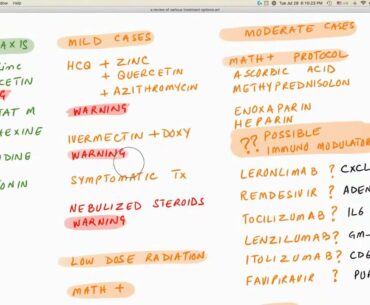 a review of various treatment options.art
Tue Jul 28 6:10:23 PM
AXIS
CETIN
TAT M
HEXINE
IDINE
ONIN
MILD CASES
HCQ + ZINC
+ QUERCETIN
+ AZITHROMYCIN
WARNING
IVERMECTIN + DOXY
WARNING
SYMPTOMATIC TX
NEBULIZED STEROIDS
WARNING
LOW DOSE RADIATION
MATH +
MODERATE CASES
MATH+ PROTOCOL
ASCORBIC ACID
METHYPREDNISOLON
ENOXAPARIN
HEPARIN
?? POSSIBLE
IMMUNO MODULATOR
LERONLIMAB ? CXCL
REMDESIVIR ? ADEN
TOCILIZUMAB ? IL6
LENZILUMAB ? GM-
ITOLIZUMAB ? CD6
FAVIPIRAVIR ? PU